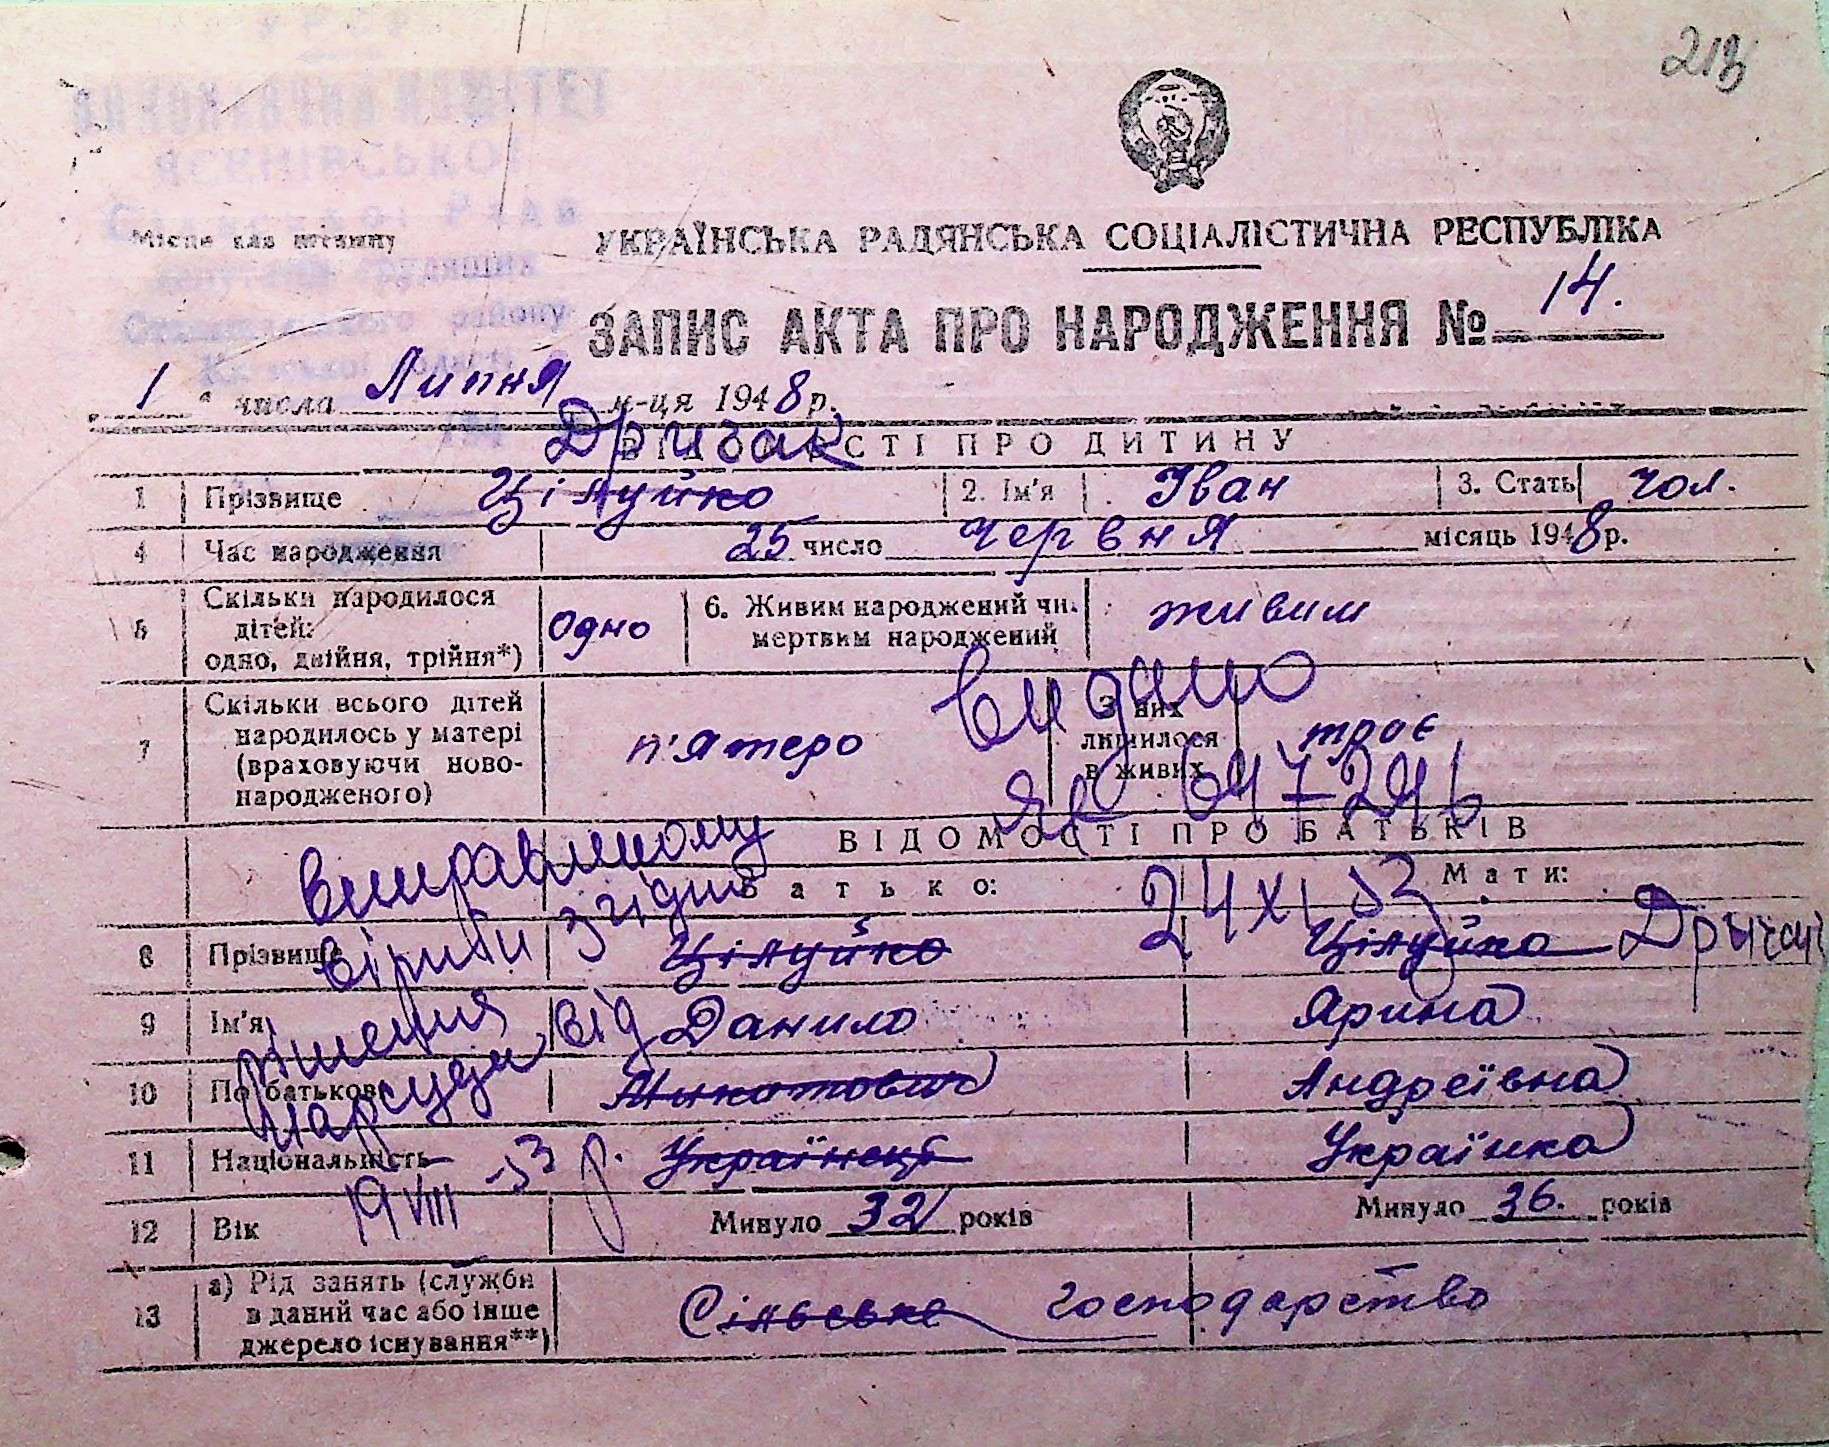 213
ВИКОНАВЧИЙ КОМІТЕТ
ЯСЕНІВСЬКОЇ
Сільської Ради
депутатів трудящих
району
УКРАЇНСЬКА РАДЯНСЬКА СОЦІАЛІСТИЧНА РЕСПУБЛІКА
ЗАПИС АКТА ПРО НАРОДЖЕННЯ № 14.
1 числа Липня м-ця 1948 р.
Дричак
ВІДОМОСТІ ПРО ДИТИНУ
1 Прізвище Цілуйко 2. Ім'я Іван 3. Стать чол.
4 Час народження 25 число Червня місяць 1948 р.
5 Скільки народилося дітей: одно, двійня, трійня*) одно 6. Живим народжений чи мертвим народжений живим
7 Скільки всього дітей народилось у матері (враховуючи новонародженого) п'ятеро З них лишилося в живих троє
видано
24 XI 53
ВІДОМОСТІ ПРО БАТЬКІВ
Батько: Мати:
8 Прізвище Цілуйко Цілуйко
9 Ім'я Данило Ярина
10 По батькові Андреївна
11 Національність Українець Українка
12 Вік Минуло 32 років Минуло 36. років
13 а) Рід занять (служби в даний час або інше джерело існування**) Сільське господарство
виправленому
вірити згідно
рішення
нарсуда від
19 VIII-53 р.